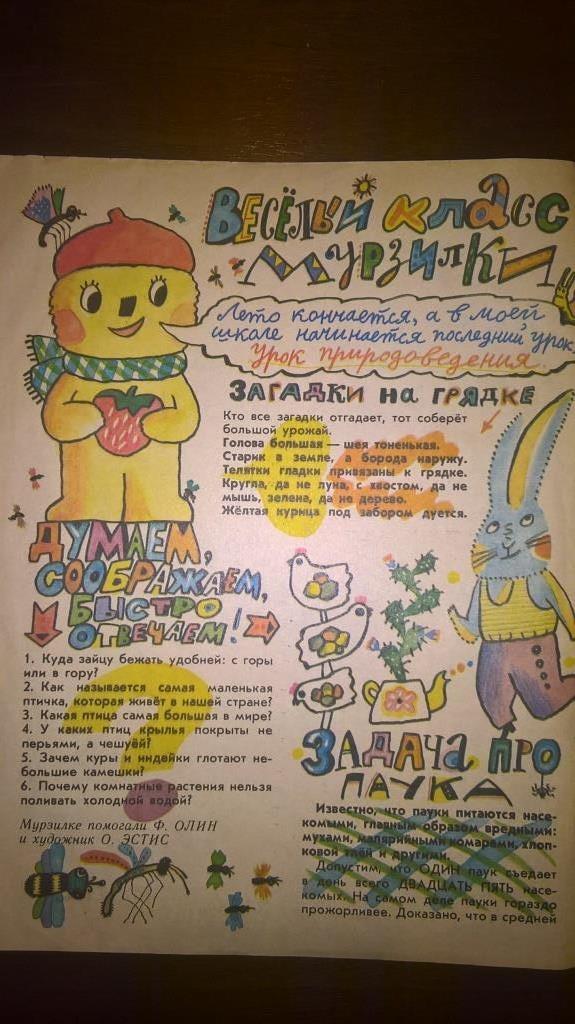 ВЕСЁЛЫЙ КЛАСС
МУРЗИЛКИ
Лето кончается, а в моей
школе начинается последний урок,
урок природоведения.
ЗАГАДКИ НА ГРЯДКЕ
Кто все загадки отгадает, тот соберёт
большой урожай.
Голова большая — шея тоненькая.
Старик в земле, а борода наружу.
Телятки гладки привязаны к грядке.
Кругла, да не луна, с хвостом, да не
мышь, зелена, да не дерево.
Жёлтая курица под забором дуется.
ДУМАЕМ,
СООБРАЖАЕМ,
БЫСТРО
ОТВЕЧАЕМ!
1. Куда зайцу бежать удобней: с горы
или в гору?
2. Как называется самая маленькая
птичка, которая живёт в нашей стране?
3. Какая птица самая большая в мире?
4. У каких птиц крылья покрыты не
перьями, а чешуёй?
5. Зачем куры и индейки глотают не-
большие камешки?
6. Почему комнатные растения нельзя
поливать холодной водой?
Мурзилке помогали Ф. ОЛИН
и художник О. ЭСТИС
ЗАДАЧА ПРО
ПАУКА
Известно, что пауки питаются насе-
комыми, главным образом вредными:
мухами, малярийными комарами, хлоп-
ковой тлёй и другими.
Допустим, что ОДИН паук съедает
в день всего ДВАДЦАТЬ ПЯТЬ насе-
комых. На самом деле пауки гораздо
прожорливее. Доказано, что в средней